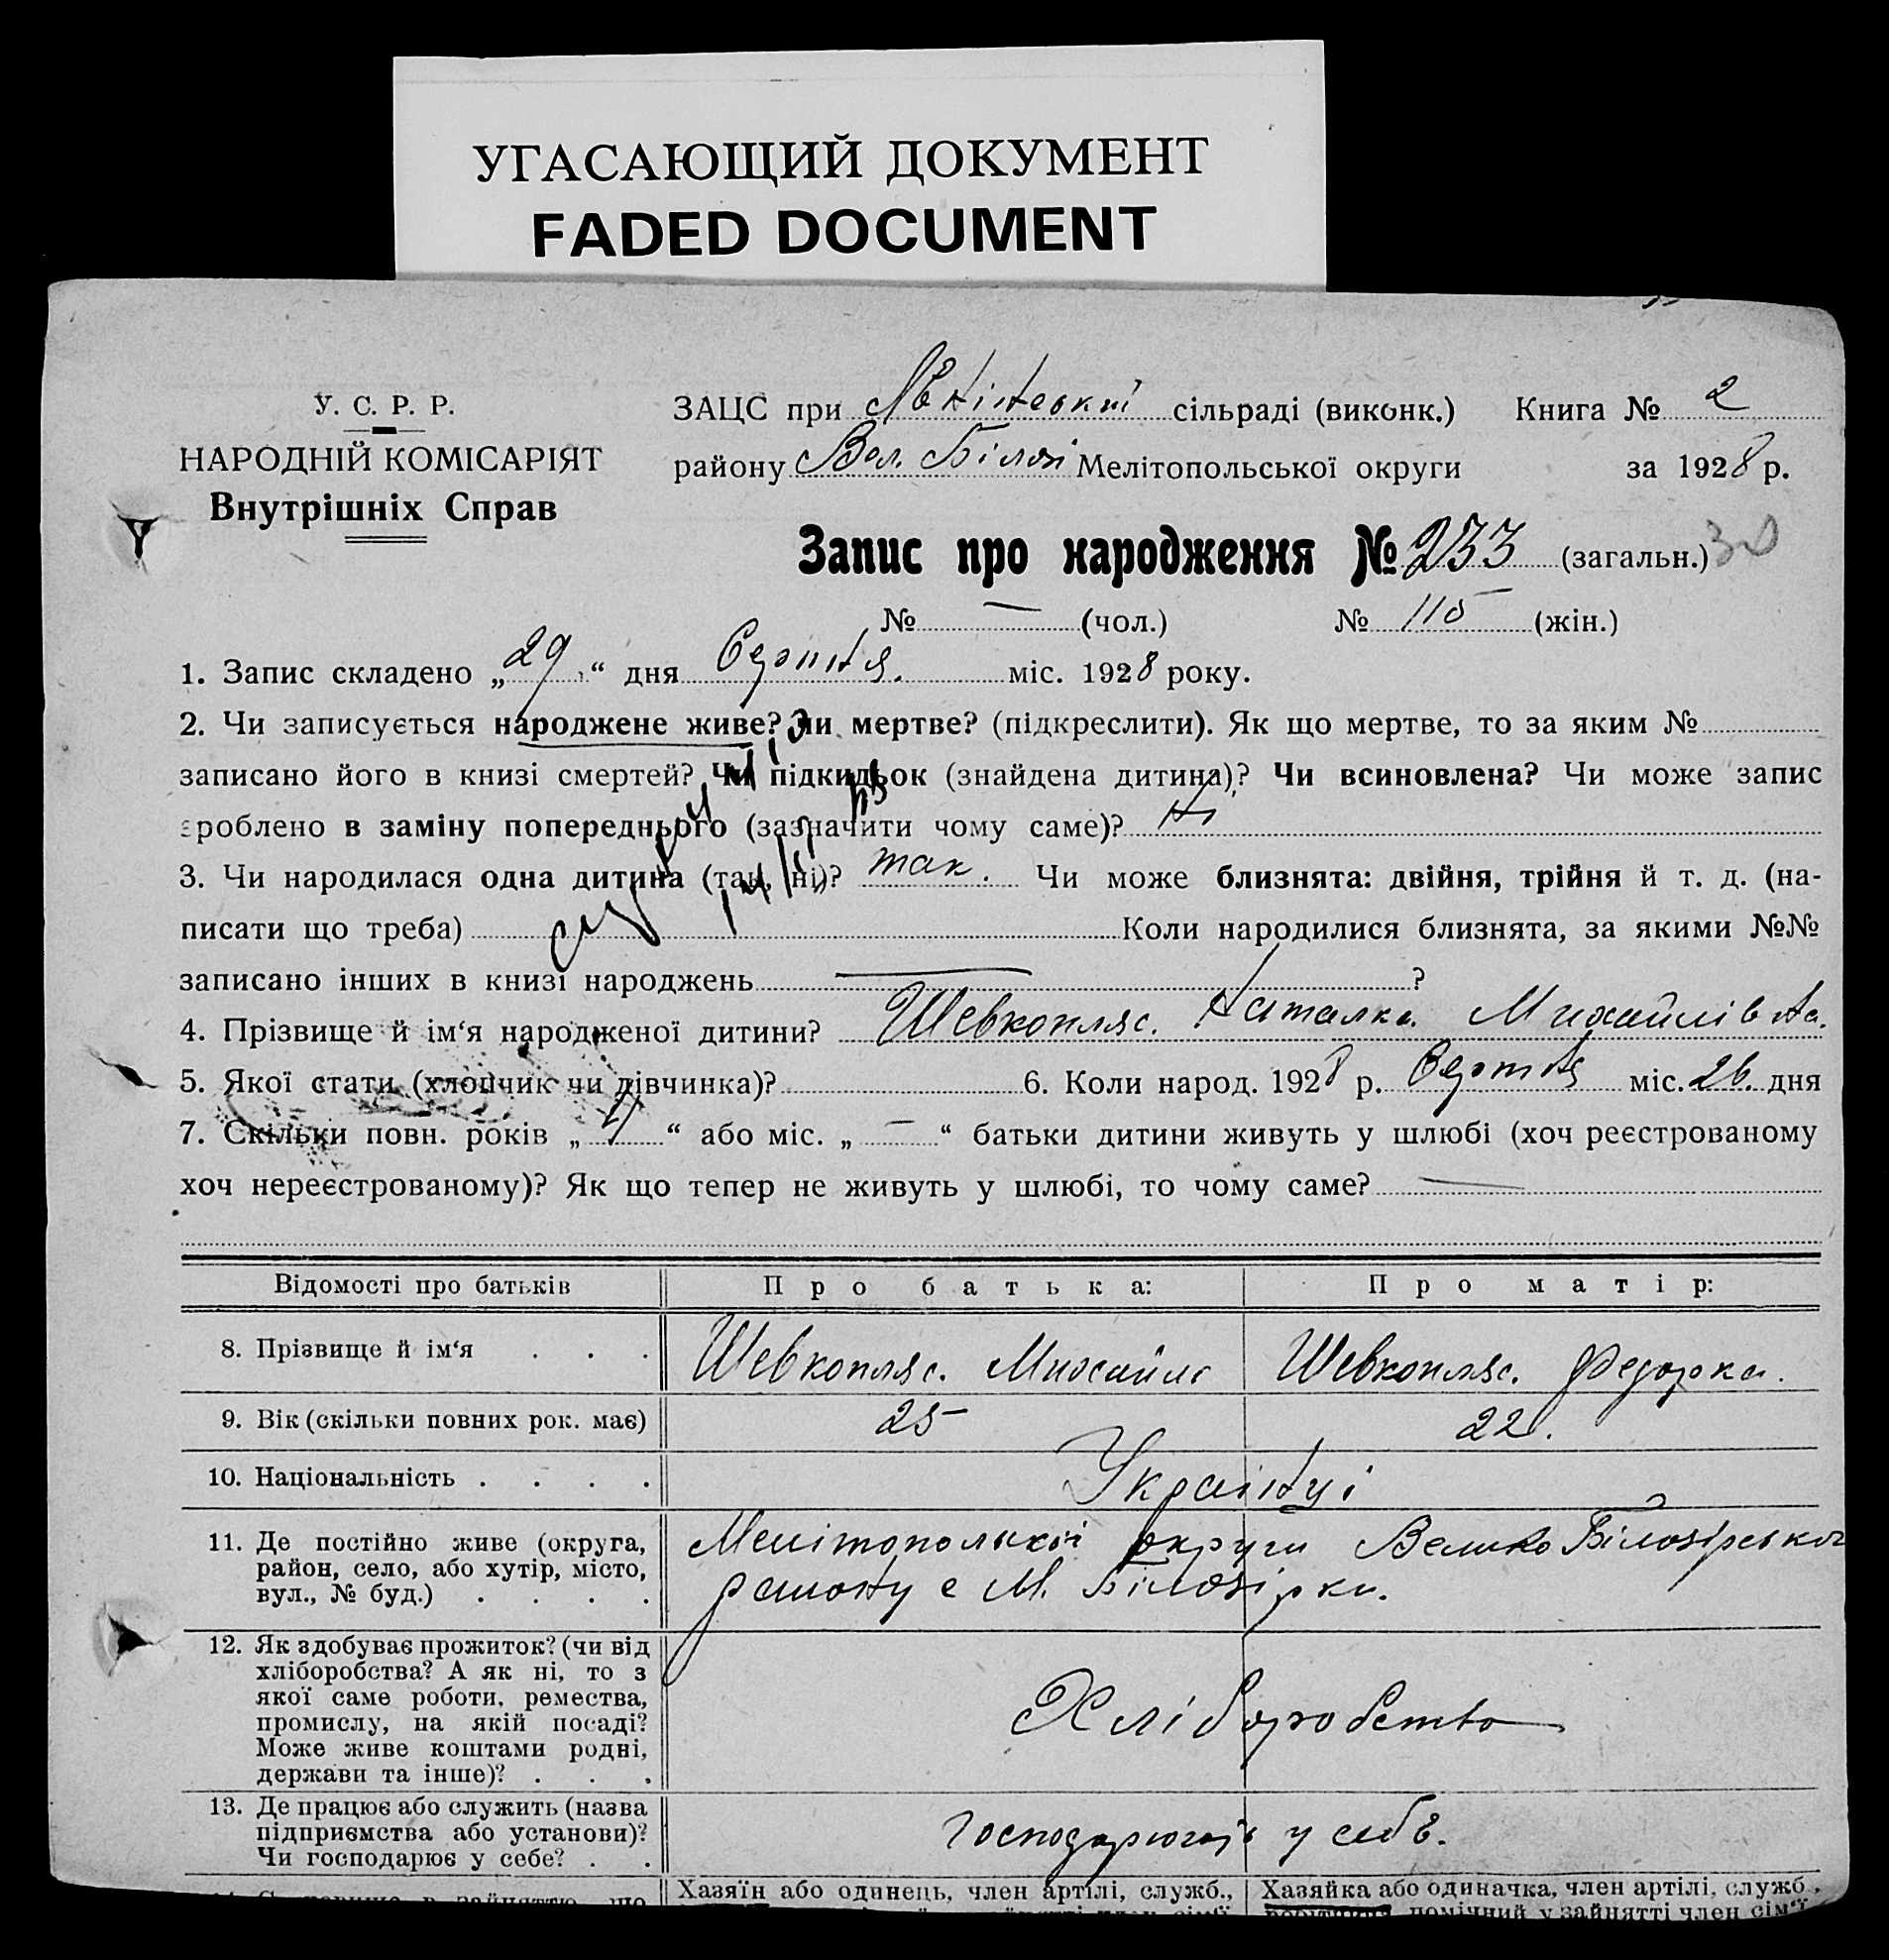 УГАСАЮЩИЙ ДОКУМЕНТ
FADED DOCUMENT
У. С. Р. Р.
НАРОДНІЙ КОМІСАРІЯТ
Внутрішніх Справ
ЗАЦС при сільраді (виконк.) Книга № 2
району Вел. Білозі Мелітопольської округи за 1928 р.
Запис про народження № 233 (загальн.) 30
№ — (чол.) № 115 (жін.)
1. Запис складено „29“ дня Серпня. міс. 1928 року.
2. Чи записується народжене живе? Чи мертве? (підкреслити). Як що мертве, то за яким №
записано його в книзі смертей? Чи підкидьок (знайдена дитина)? Чи всиновлена? Чи може запис
зроблено в заміну попереднього (зазначити чому саме)? Ні
3. Чи народилася одна дитина (так, ні)? так. Чи може близнята: двійня, трійня й т. д. (на-
писати що треба) Коли народилися близнята, за якими №№
записано інших в книзі народжень — ?
4. Прізвище й ім‘я народженої дитини? Шевкопляс. Наталка. Михайлівна.
5. Якої стати (хлопчик чи дівчинка)? 6. Коли народ. 1928 р. Серпня міс. 26. дня
7. Скільки повн. років „4“ або міс. „—“ батьки дитини живуть у шлюбі (хоч реєстрованому
хоч нереєстрованому)? Як що тепер не живуть у шлюбі, то чому саме? —
Відомості про батьків Про батька: Про матір:
8. Прізвище й ім‘я . . . Шевкопляс. Михайло Шевкопляс. Федорка.
9. Вік (скільки повних рок. має) 25 22.
10. Національність . . . . Українці
11. Де постійно живе (округа,
район, село, або хутір, місто,
вул., № буд.) . . . .
Мелітопольскої округи Велико Білозірської
району с М. Білозірки.
12. Як здобуває прожиток? (чи від
хліборобства? А як ні, то з
якої саме роботи, ремества,
промислу, на якій посаді?
Може живе коштами родні,
держави та інше)? . . .
Хліборобство
13. Де працює або служить (назва
підприємства або установи)?
Чи господарює у себе? . .
господарюють у себъ.
Хазяїн або одинець, член артілі, служб., Хазяйка або одиначка, член артілі, служб.,
помічний у зайнятті член сім‘ї